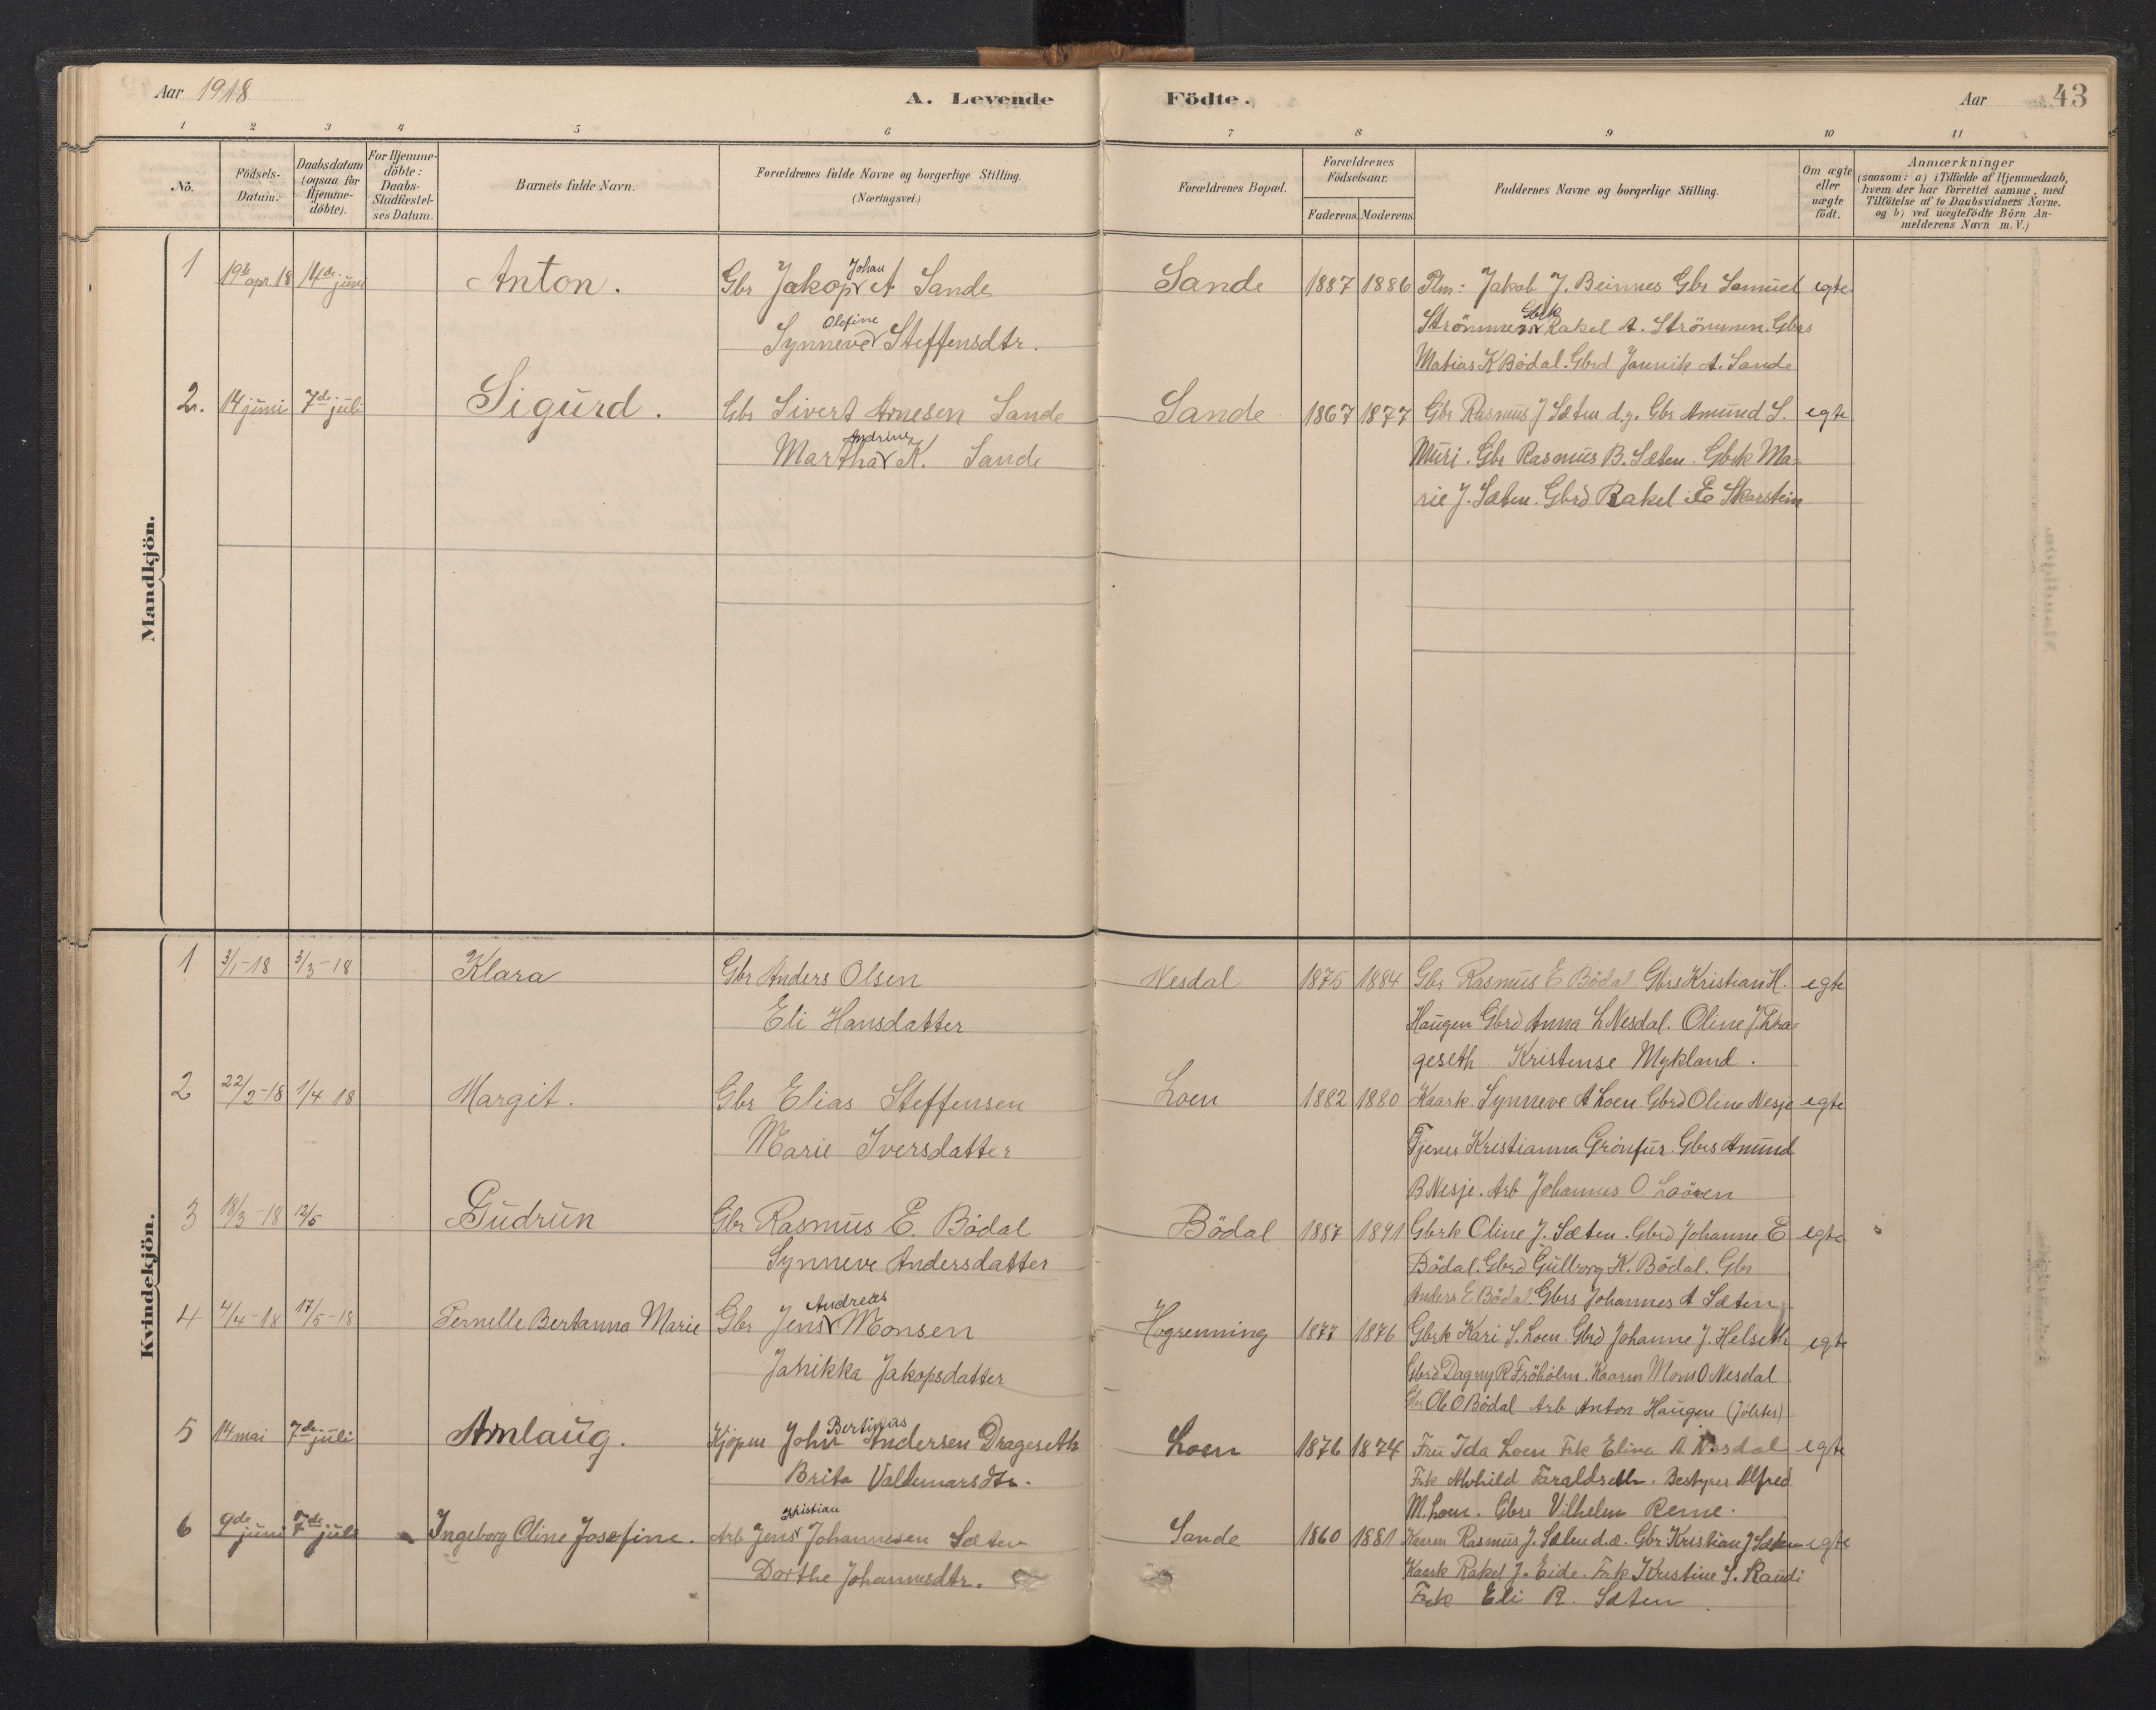 Aar 1918
A. Levende Födte.
Aar 43
1 2 3 4 5 6 7 8 9 10 11
No.
Födsels-
Datum.
Daabsdatum
(ogsaa for
Hjemme-
döbte).
For Hjemme-
döbte:
Daabs-
Stadfæstel-
ses Datum.
Barnets fulde Navn.
Forældrenes fulde Navne og borgerlige Stilling.
(Næringsvei.)
Forældrenes Bopæl.
Forældrenes
Födselsaar.
Faderens. Moderens.
Faddernes Navne og borgerlige Stilling.
Om ægte
eller
uægte
födt.
Anmærkninger
(saasom: a) i Tilfælde af Hjemmedaab,
hvem der har forrettet samme, med
Tilföielse af to Daabsvidners Navne,
og b) ved uægtefödte Börn An-
melderens Navn m. V.)
Mandkjön.
1 19de apr. 18 14de juni Anton. Gbr Jakop Johan A Sande Sande 1887 1886 Plm: Jakob J. Beinnes Gbr Samuel egte
Synneve Olefine Steffensdtr. Strömmen Gbrk Rakel A. Strömmen. Gbrs
Matias K Bödal. Gbrd Jannik A. Sande
2. 14 juni 7de juli Sigurd. Gbr Sivert Arnesen Sande Sande 1867 1877 Gbr Rasmus J Sæten d.y. Gbr Amund S. egte
Martha Andrine K. Sande Muri. Gbr Rasmus B. Sæten. Gbrk Ma-
rie J. Sæten. Gbrd Rakel E Skarstein
Kvindekjön.
1 3/1-18 3/3-18 Klara Gbr Anders Olsen Nesdal 1875 1884 Gbr Rasmus E Bödal Gbrs Kristian H. egte
Eli Hansdatter Haugen Gbrd Anna L Nesdal. Oline J. Dra-
geseth. Kristense Mykland.
2 22/2-18 1/4 18 Margit. Gbr Elias Steffensen Loen 1882 1880 Kaark. Synneve A Loen Gbrd Oline Nesje egte
Marie Iversdatter Tjenes Kristianna Grönfur. Gbrs Amund
B Nesje. Arb Johannes O. Looven
3 18/3-18 12/5 Gudrun Gbr Rasmus E. Bödal Bödal 1887 1891 Gbrk Oline J. Sæten. Gbrd Johanne E egte
Synneve Andersdatter Bödal. Gbrd Gullborg K. Bödal. Gbr
Anders E Bödal. Gbrs Johannes A Sæten
4 4/4-18 17/5-18 Pernelle Bertanna Marie Gbr Jens Andreas Monsen Hogrenning 1877 1876 Gbrk Kari S. Loen. Gbrd Johanne J. Helseth egte
Janikka Jakopsdatter Gbrd Dagny R Fröholm. Kaarm Mons O Nesdal
Gbr Ole O Bödal Arb Anton Haugen (Jölster)
5 14 mai 7de juli Amlaug. Kjöpm John Bertinus Andersen Drageseth Loen 1876 1874 Fru Ida Loen Frk Elina A Nesdal egte
Brita Valdemarsdtr. Frk Alvhild Faraldseth. Bestyrer Alfred
M. Loen. Gbrs Vilhelm Reme.
6 9de juni 7de juli Ingeborg Oline Josefine. Arb Jens Kristian Johannesen Sæten Sande 1860 1881 Kaarm Rasmus J. Sæten d.e. Gbr Kristian J Sæten egte
Dorthe Johannesdtr. Kaark Rakel J. Eide. Frk Kristine S. Raudi
Frk Eli R. Sæten